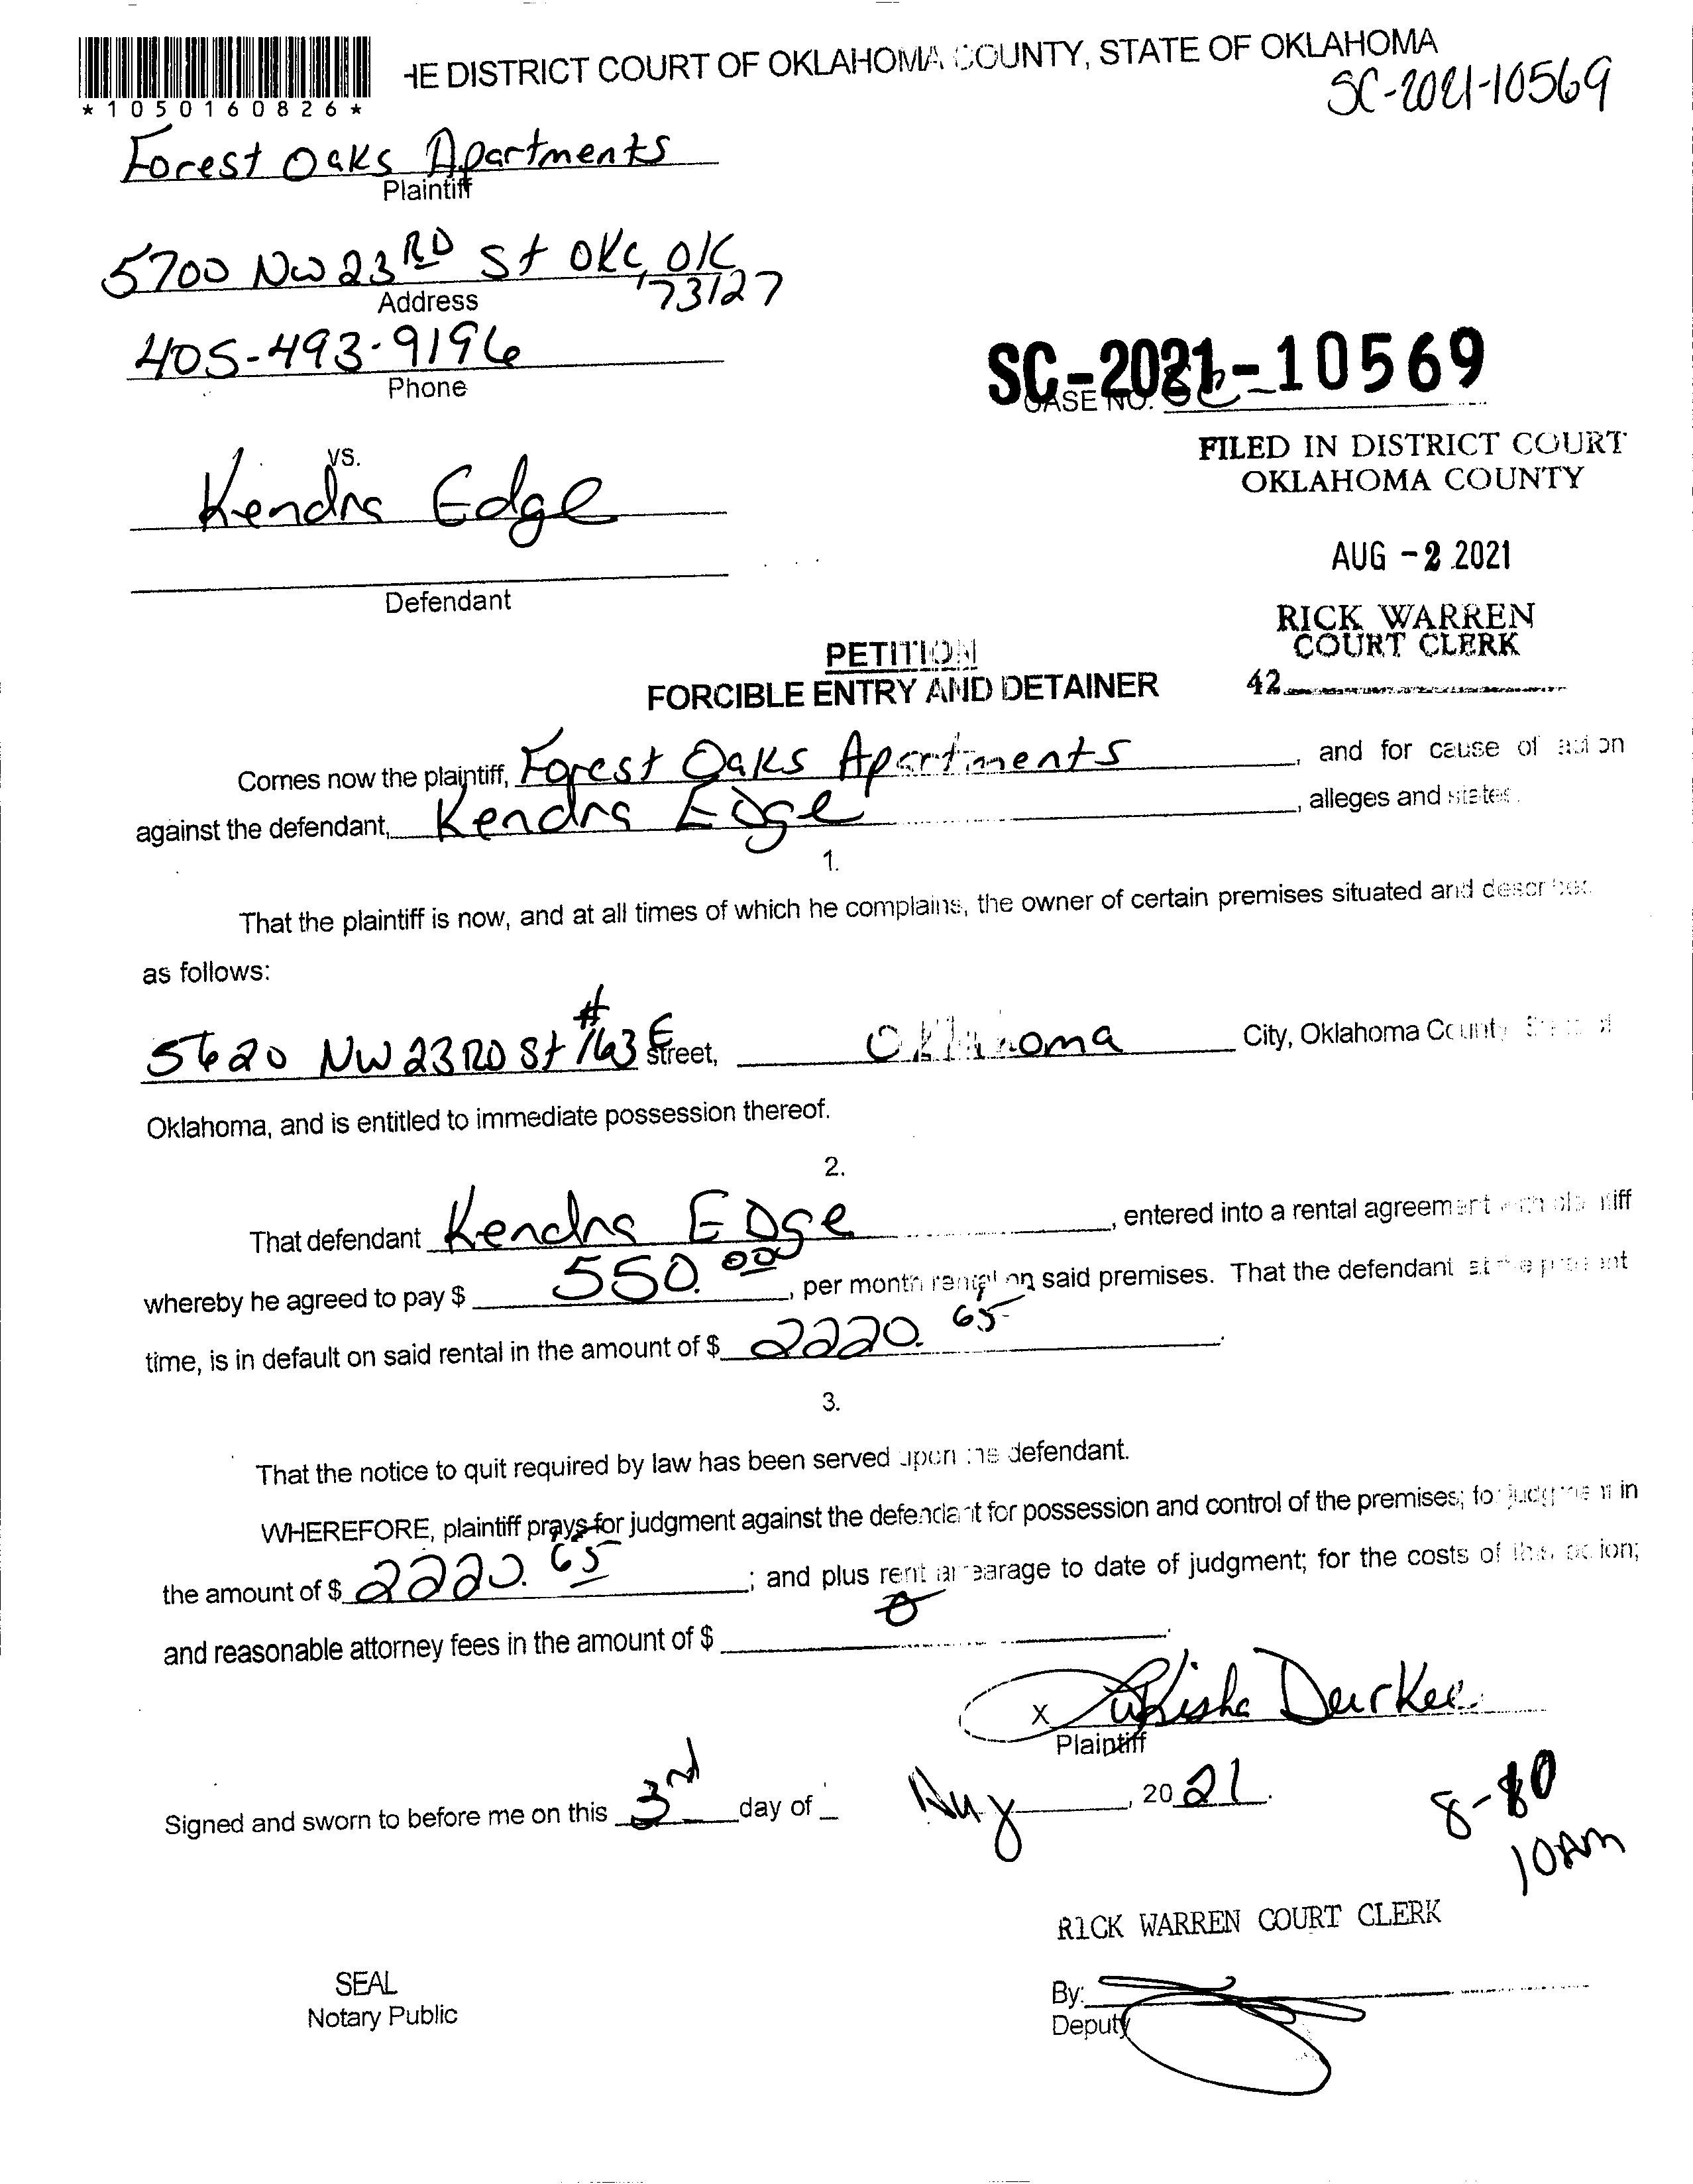 *1050160826*
HE DISTRICT COURT OF OKLAHOMA COUNTY, STATE OF OKLAHOMA
SC-2021-10569
Forest Oaks Apartments
Plaintiff
5700 NW 23RD St OKC, OK
73127
Address
405-493-9196
Phone
SC-2021-10569
CASE NO. SC-
vs.
Kendra Edge
Defendant
FILED IN DISTRICT COURT
OKLAHOMA COUNTY
AUG -2 2021
RICK WARREN
COURT CLERK
42
PETITION
FORCIBLE ENTRY AND DETAINER
Comes now the plaintiff, Forest Oaks Apartments, and for cause of action
against the defendant, Kendra Edge, alleges and states.
1.
That the plaintiff is now, and at all times of which he complains, the owner of certain premises situated and described
as follows:
5620 NW 23RD St #163 E Street, Oklahoma City, Oklahoma County, State of
Oklahoma, and is entitled to immediate possession thereof.
2.
That defendant Kendra Edge, entered into a rental agreement with plaintiff
whereby he agreed to pay $ 550.00, per month rental on said premises. That the defendant at the present
time, is in default on said rental in the amount of $ 2220.65.
3.
That the notice to quit required by law has been served upon the defendant.
WHEREFORE, plaintiff prays for judgment against the defendant for possession and control of the premises; for judgment in
the amount of $ 2220.65; and plus rent arrearage to date of judgment; for the costs of this action;
and reasonable attorney fees in the amount of $ 0.
X Durkee
Plaintiff
Signed and sworn to before me on this 3rd day of Aug, 2021.
8-
10AM
RICK WARREN COURT CLERK
SEAL
Notary Public
By:
Deputy